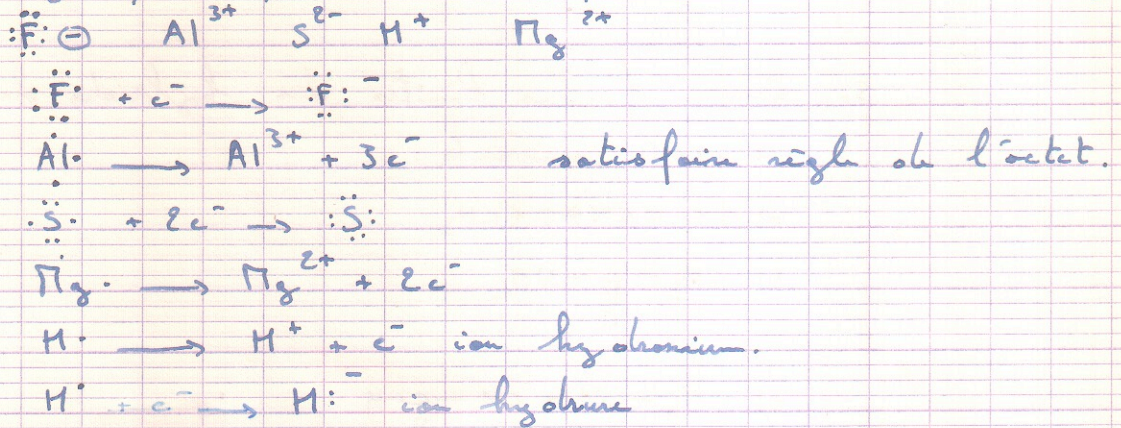 :F: ⊖ Al³⁺ S²⁻ H⁺ Mg²⁺
:F· + e⁻ → :F:⁻
Al· → Al³⁺ + 3e⁻ satisfaire règle de l'octet.
·S· + 2e⁻ → :S:
Mg· → Mg²⁺ + 2e⁻
H· → H⁺ + e⁻ ion hydronium.
H· + e⁻ → H:⁻ ion hydrure